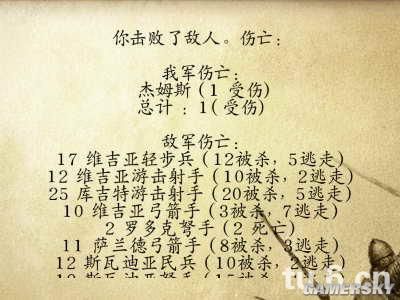 你击败了敌人。伤亡:
我军伤亡:
杰姆斯 (1 受伤)
总计 : 1(受伤)
敌军伤亡:
17 维吉亚轻步兵 (12被杀, 5逃走)
12 维吉亚游击射手 (10被杀, 2逃走)
25 库吉特游击射手 (20被杀, 5逃走)
10 维吉亚弓箭手 (3被杀, 7逃走)
2 罗多克弩手 (2 死亡)
11 萨兰德弓箭手 (8被杀, 3逃走)
12 斯瓦迪亚民兵 (10被杀, 2逃走)
GAMERSKY